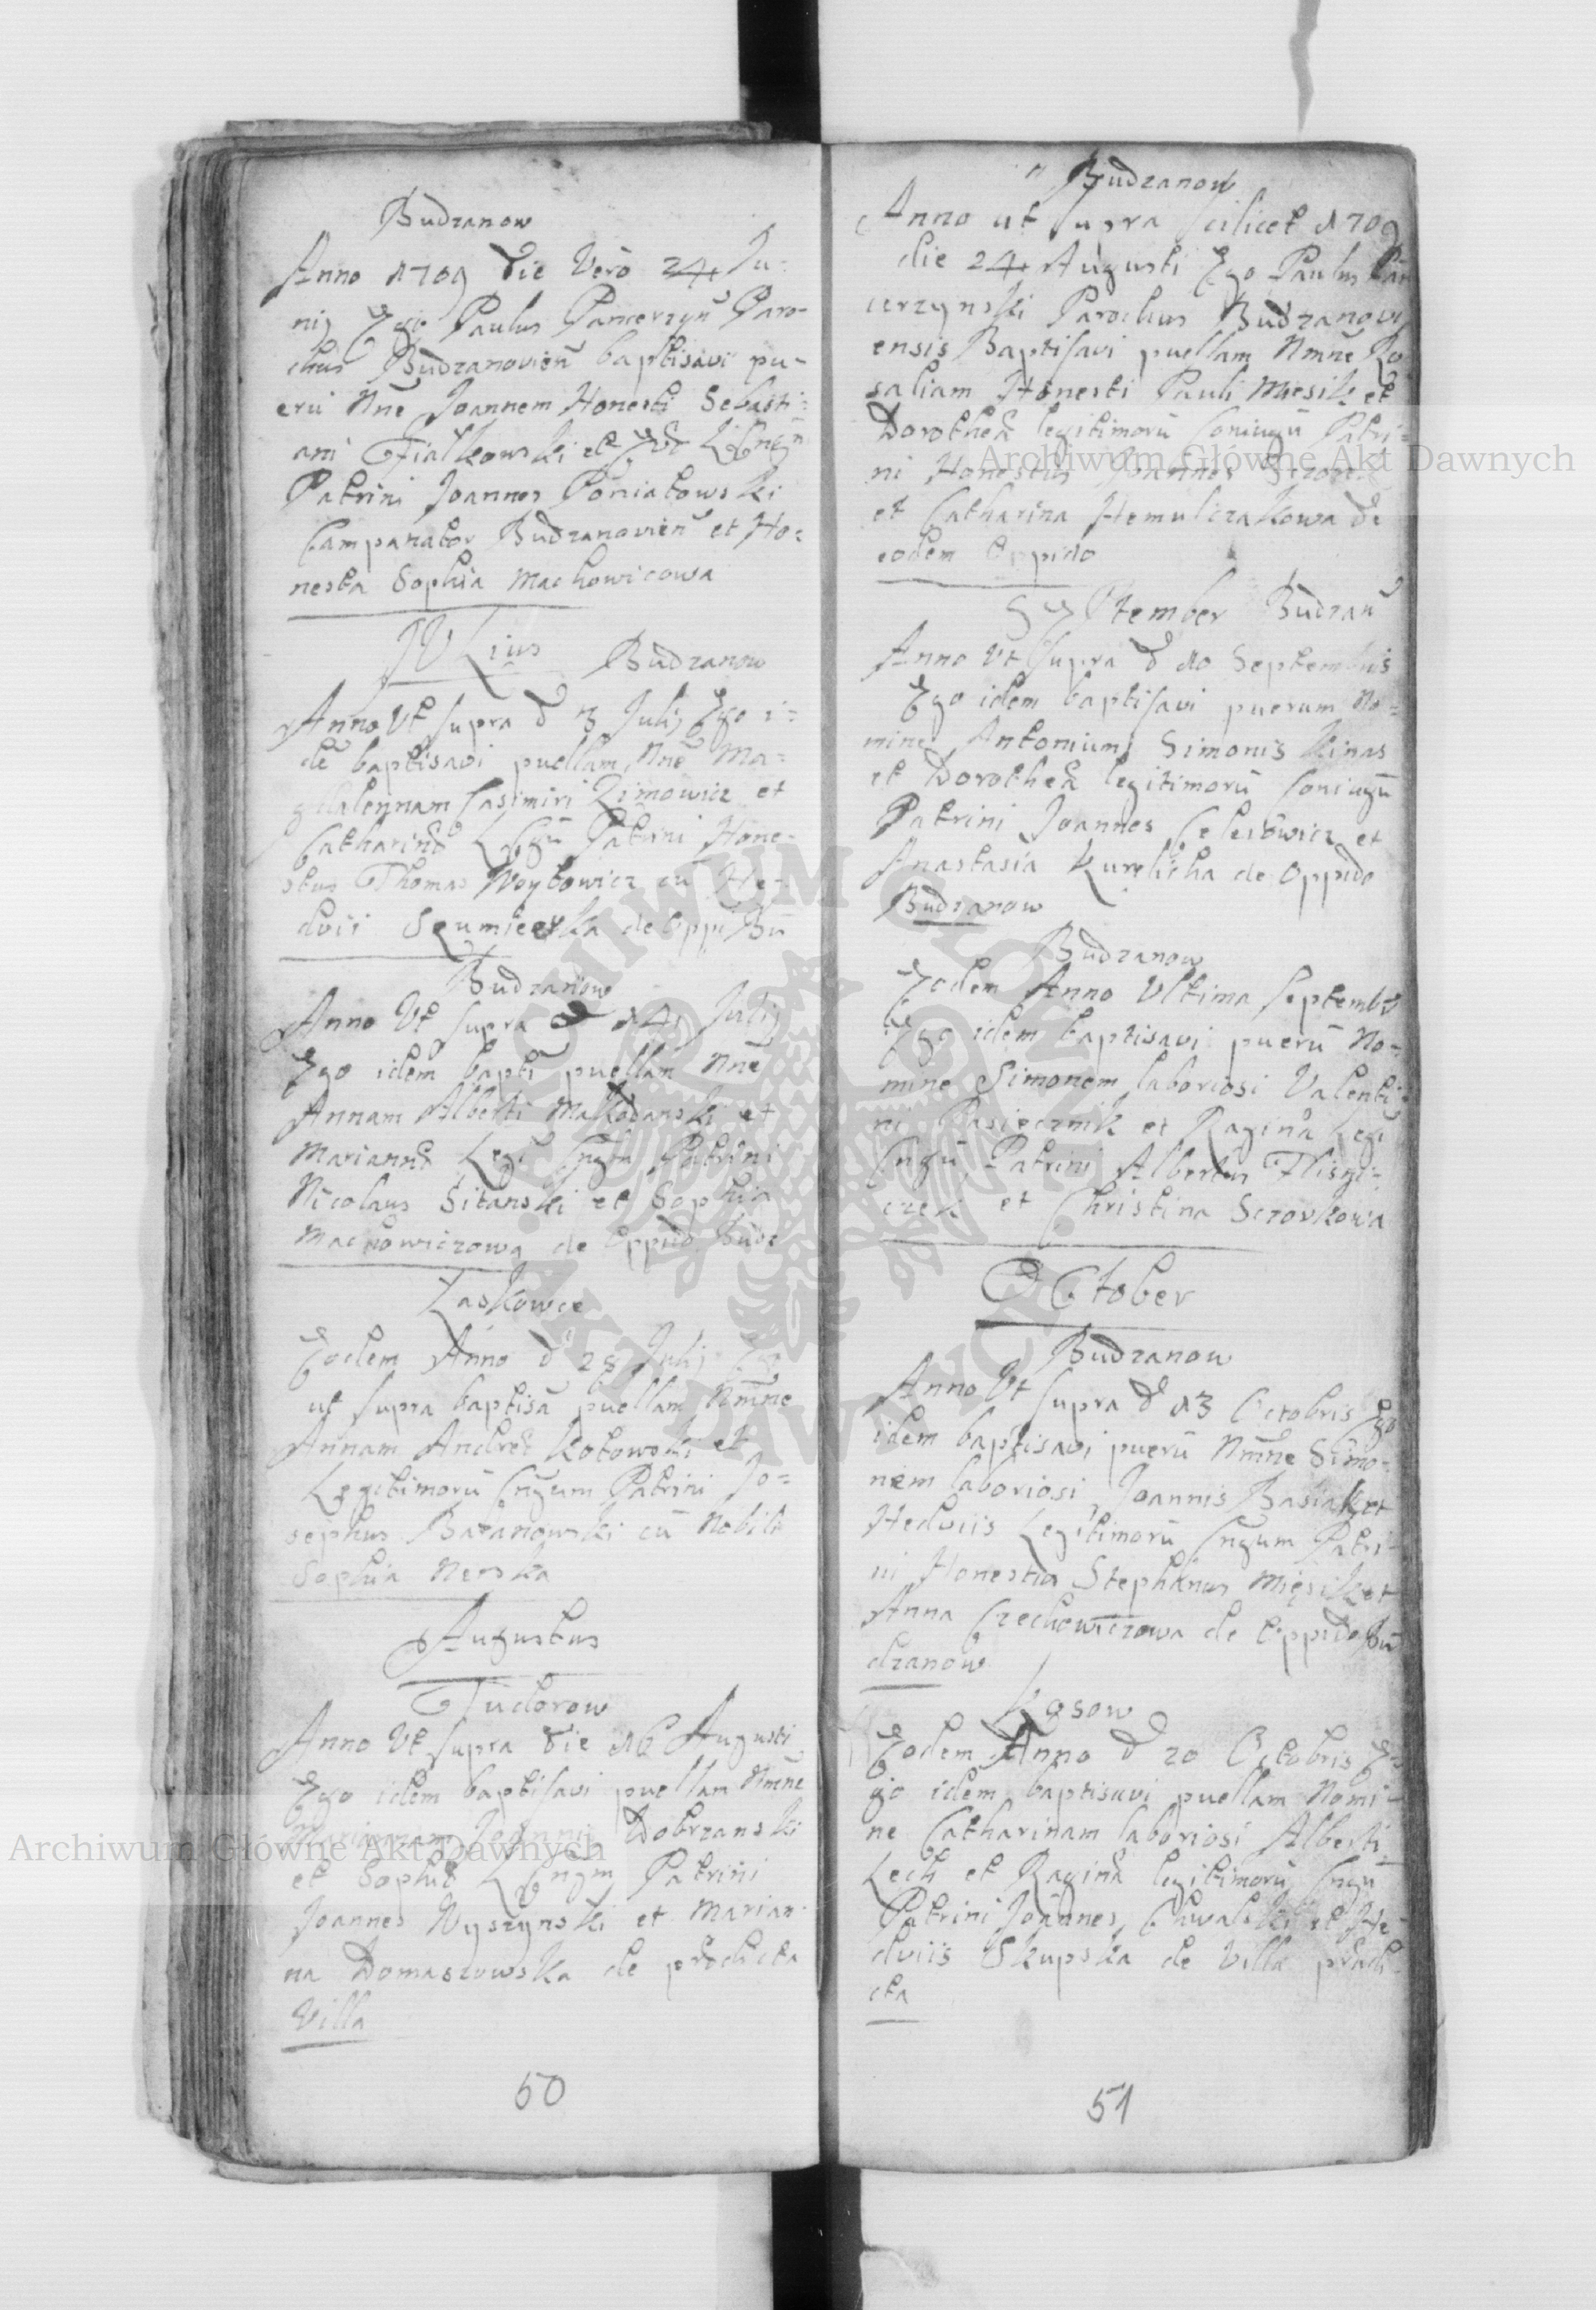 Budzanow
Anno 1709 die Vero 24 Ju=
nij Ego Paulus Pancerzyn Paro-
chus Budzanovien baptisavi pu-
erū Nne Joannem Honesti Sebasti=
ani Fiałkowski et
Patrini Joannes Poniatowski
Campanator Budzanovien et Ho=
nesta Sophia Machowicowa
JULius Budzanow
Anno Ut supra d Julij Ego i=
dē baptisavi puellam Nnē Ma=
gdalennam Casimiri Zimowicz et
Catharinæ Patrini Hone-
stus Thomas Woytowicz cū He-
dvii de Oppi Bū
Budzanow
Anno Ut supra d 14 Julij
Ego idem bapti puellam Nnē
Annam Alberti et
Mariannæ Legi Cngū Patrini
Nicolaus Sitanski et Sophia
Machowiczowa de Oppid Budz
Laskowce
Eodem Anno d 28 Julij Eg
ut supra baptisa puellam Nmne
Annam Andreæ Kotowski et
Legitimorū Cngum Patrini Jo=
sephus Baranowski cū Nobili
Sophia Nerska
Augustus
Tudorow
Anno Ut supra Die 16 Augusti
Ego idem baptisavi puellam Nmne
Mariannam Joannis Dobrzanski
et Sophiæ Patrini
Joannes Wyszynski et Marian-
na Domaszowska de prædicta
Villa
50
Budzanow
Anno ut supra scilicet 1709
die 24 Augusti Ego Paulus Pan
cerzynski Parochus Budzanovi
ensis Baptisavi puellam Nmne Ro
saliam Honesti Pauli Miesik et
Dorotheæ legitimorū Coniugū Patri=
ni Honestus Joannes
et Catharina Hemulczakowa de
eodem Oppido
September Budzan
Anno Ut supra d 10 Septembris
Ego idem baptisavi puerum No=
mine Antonium Simonis Kinas
et Dorotheæ legitimorū Coniugū
Patrini Joannes Celestowicz et
Anastasia Kurylicha de Oppido
Budzanow
Budzanow
Eodem Anno Ultima Septembr
Ego idem baptisavi puerū No=
mine Simonem laboriosi Valenti
ni Pasiecznik et Raginæ Legi
Cngū Patrini Albertus
et Christina Sczorkowa
October
Budzanow
Anno Ut supra d 13 Octobris Ego
idem baptisavi puerū Nmne Simo-
nem laboriosi Joannis Basiak et
Hedviis Legitimorū Cngum Patri-
ni Honestus Stephanus Mięsik et
Anna Czechowiczowa de Oppido Bu
dzanow
Kosow
Eodem Anno d 20 Octobris E-
go idem baptisavi puellam Nomi-
ne Catharinam laboriosi Alberti
Lech et Raginæ legitimorū Cngū
Patrini Joannes Chwalski et He-
dviis Skupska de Villa prædi-
cta
51
Archiwum Główne Akt Dawnych
Archiwum Główne Akt Dawnych
ARCHIWUM GŁÓWNE
AKT DAWNYCH